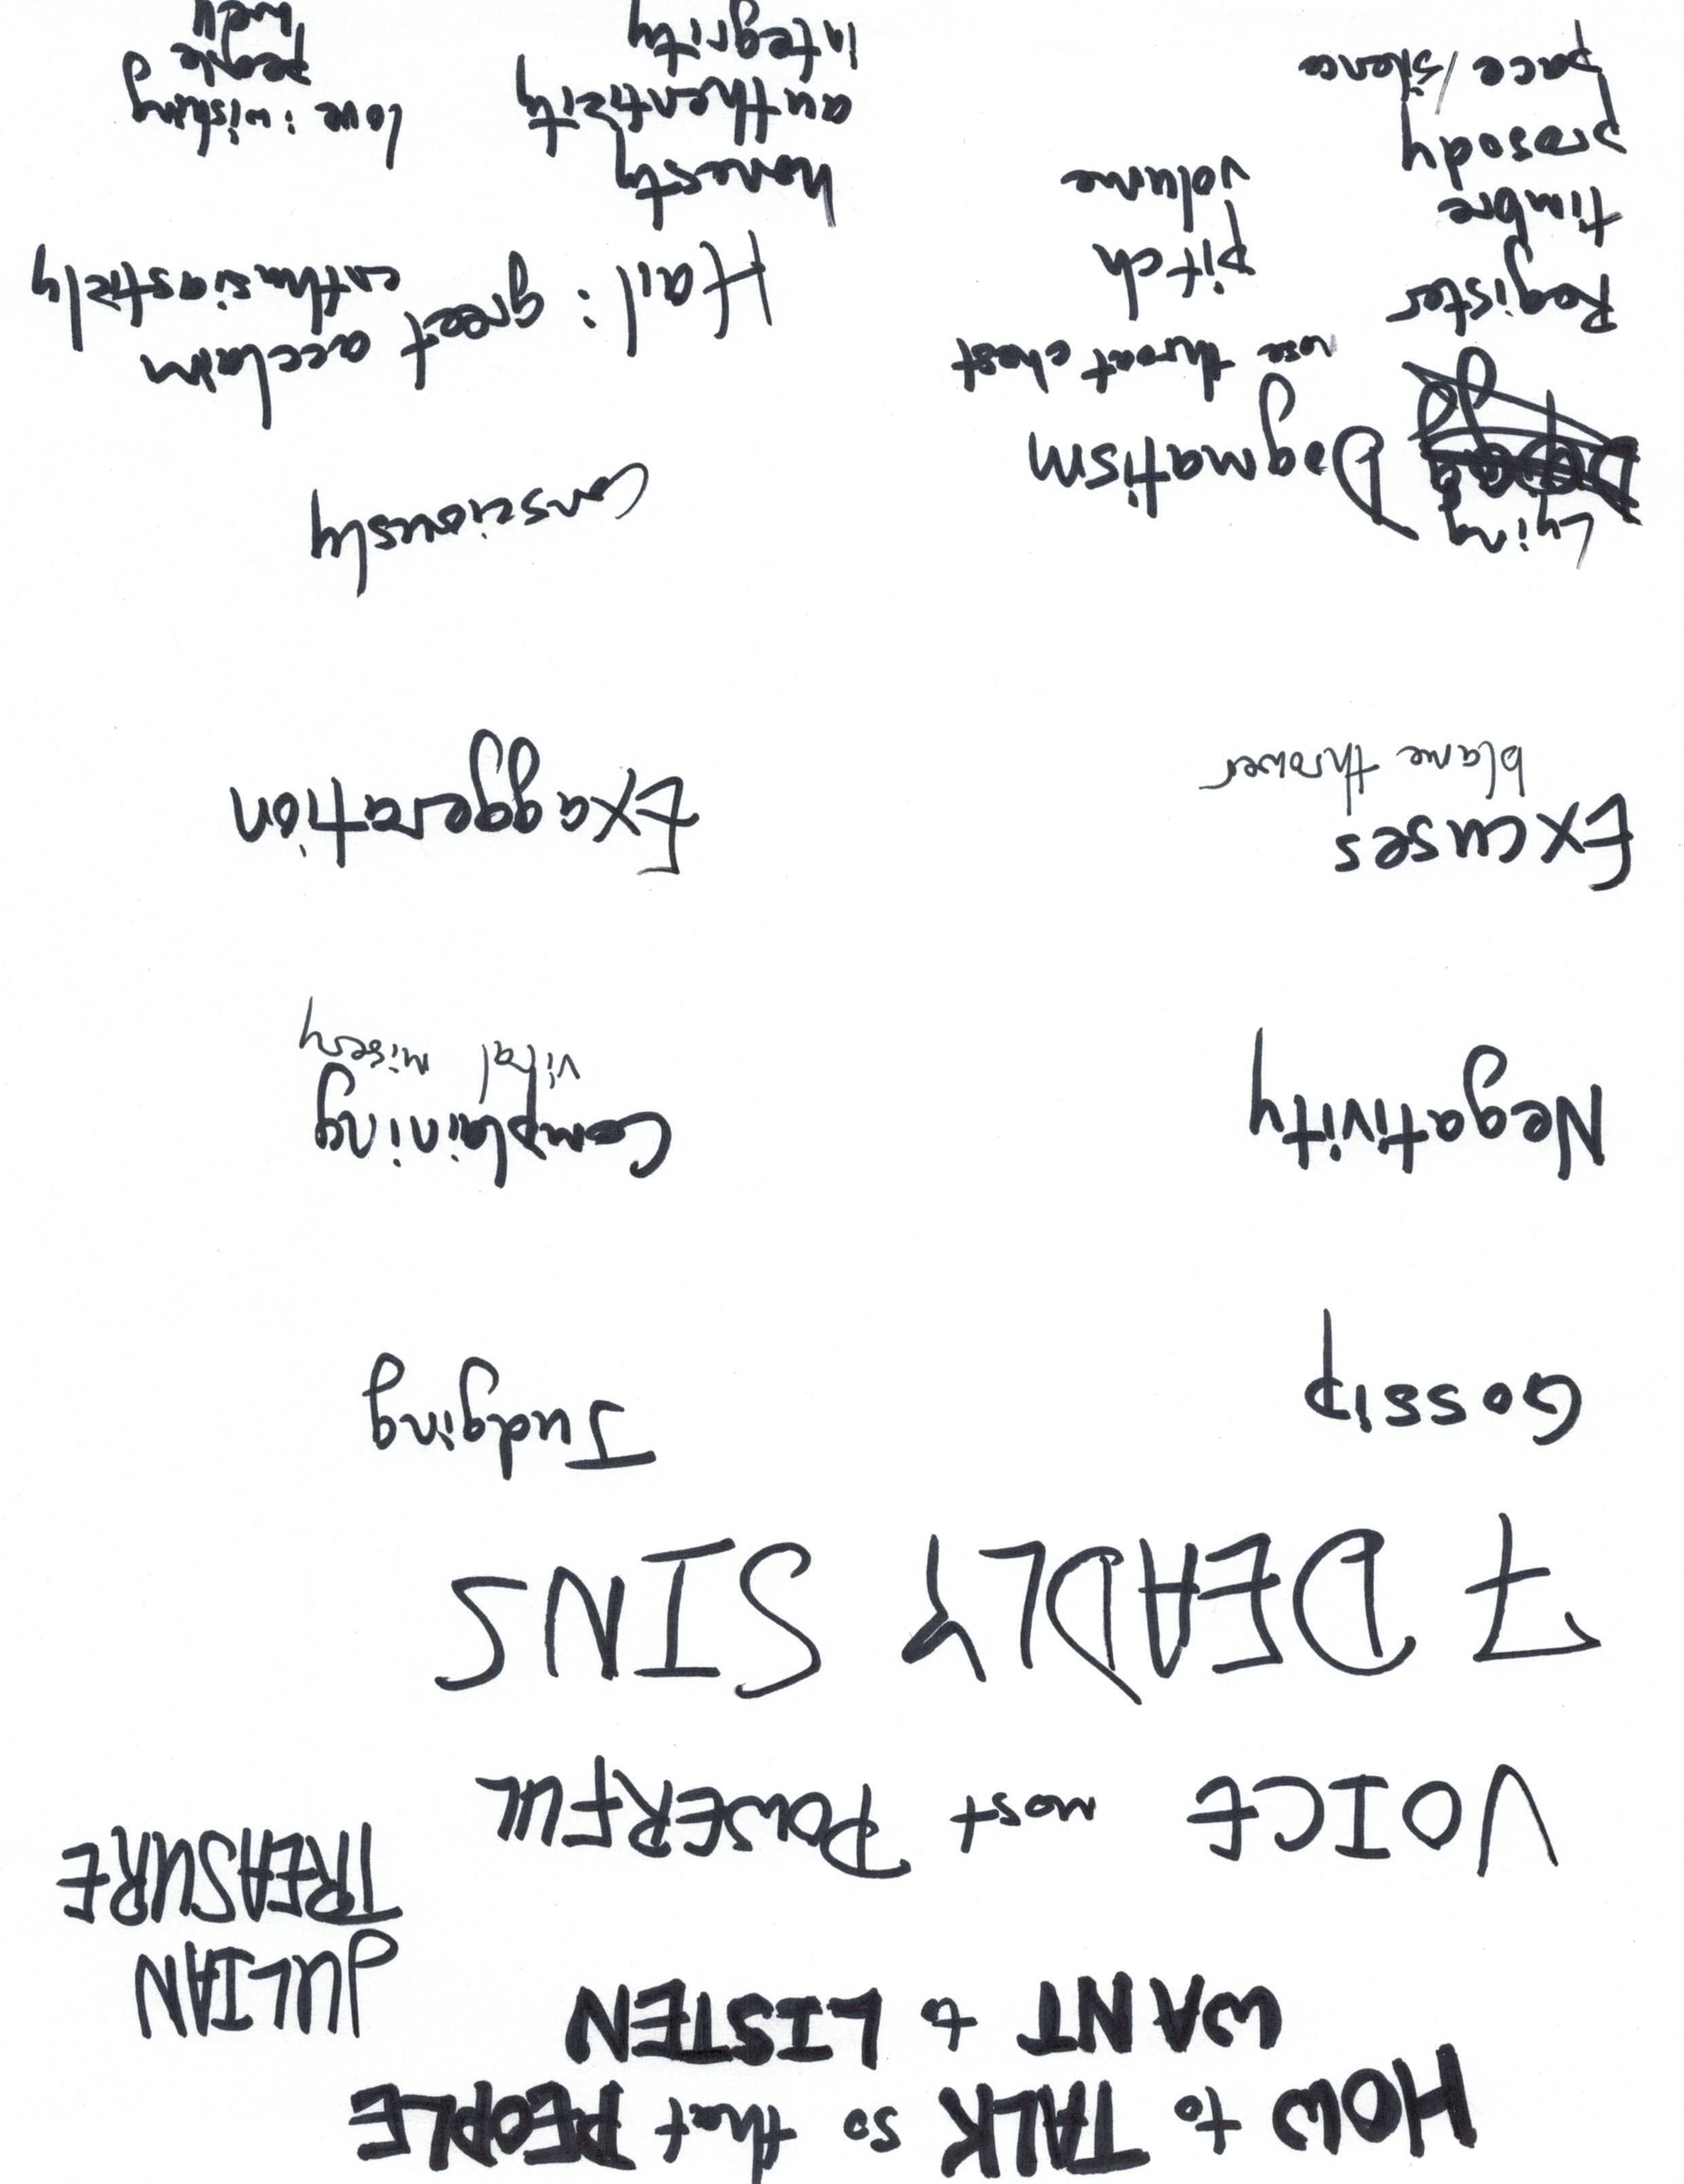 HOW to TALK so that PEOPLE
WANT to LISTEN
JULIAN
TREASURE
VOICE most POWERFUL
7 DEADLY SINS
Gossip
Judging
Negativity
Complaining
viral misery
Excuses
blame thrower
Exaggeration
Lying
Dogmatism
Consciously
nose throat chest
Register
timbre
prosody
pace/silence
pitch
volume
Hail: greet acclaim
enthusiastically
honesty
authenticity
integrity
love: wishing
people
well